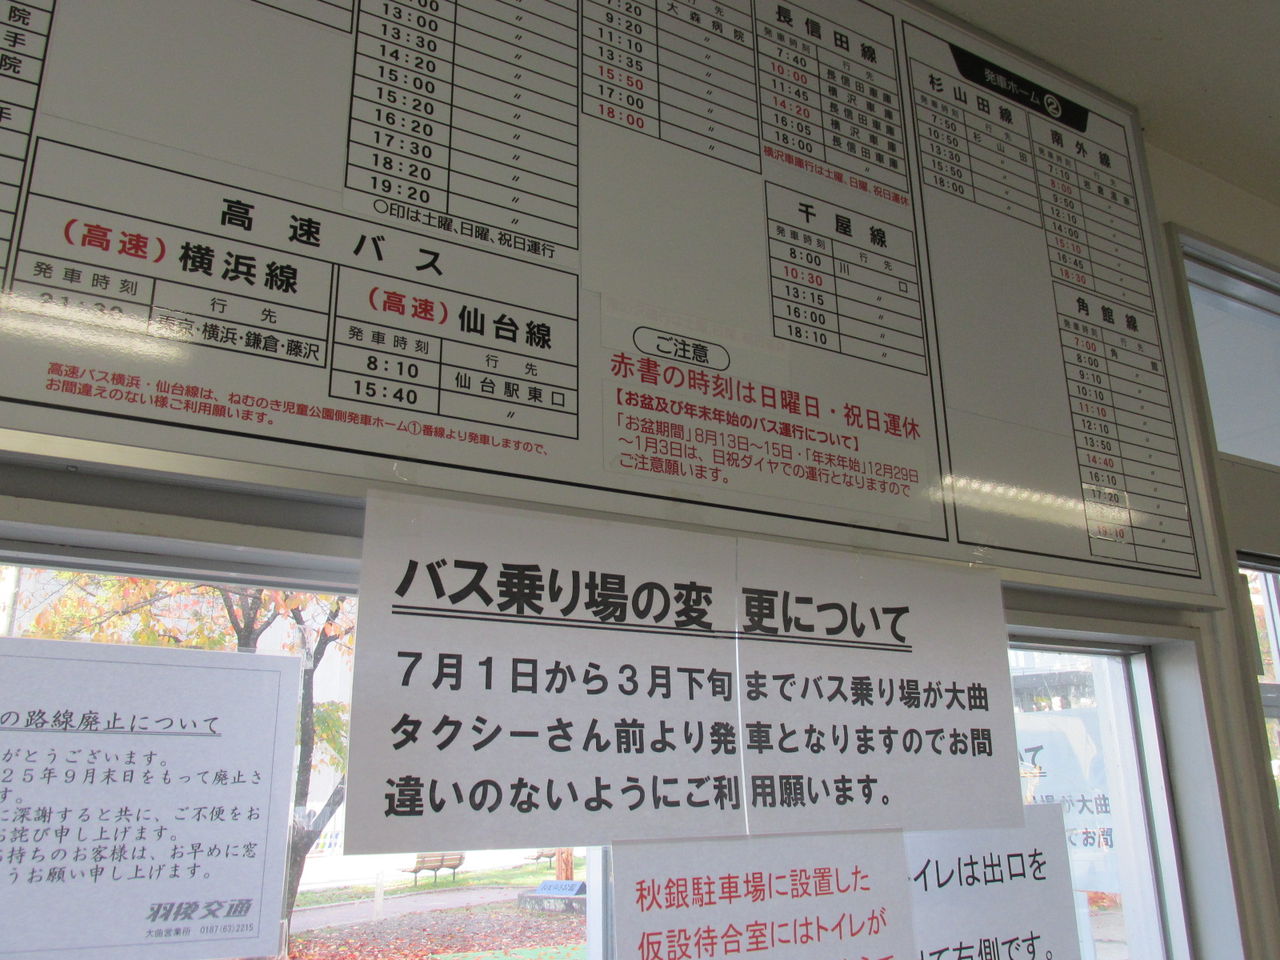 院
手
院
手
13:00 〃
13:30 〃
14:20 〃
15:00 〃
15:20 〃
16:20 〃
17:30 〃
18:20 〃
19:20 〃
○印は土曜、日曜、祝日運行
7:20 大森病院
9:20 〃
11:10 〃
13:35 〃
15:50 〃
17:00 〃
18:00 〃
長信田線
発車時刻 行先
7:40 長信田車庫
10:00 横沢車庫
11:45 長信田車庫
14:20 横沢車庫
16:05 長信田車庫
18:00
横沢車庫行は土曜、日曜、祝日運休
千屋線
発車時刻 行先
8:00 川口
10:30 〃
13:15 〃
16:00 〃
18:10 〃
発車ホーム②
杉山田線
発車時刻 行先
7:50 杉山田
10:50 〃
13:30 〃
15:50 〃
18:00 〃
南外線
発車時刻 行先
7:10
8:00 〃
9:50 〃
12:10 〃
14:00 〃
15:10 〃
16:45 〃
18:30 〃
角館線
発車時刻 行先
7:00 角館
8:00 〃
9:10 〃
10:10 〃
11:10 〃
12:10 〃
13:50 〃
14:40 〃
16:10 〃
17:20 〃
19:10 〃
高速バス
(高速)横浜線
発車時刻 行先
21:30 東京・横浜・鎌倉・藤沢
(高速)仙台線
発車時刻 行先
8:10 仙台駅東口
15:40 〃
高速バス横浜・仙台線は、ねむのき児童公園側発車ホーム①番線より発車しますので、
お間違えのない様ご利用願います。
ご注意
赤書の時刻は日曜日・祝日運休
【お盆及び年末年始のバス運行について】
「お盆期間」8月13日～15日・「年末年始」12月29日
～1月3日は、日祝ダイヤでの運行となりますので
ご注意願います。
バス乗り場の変更について
7月1日から3月下旬までバス乗り場が大曲
タクシーさん前より発車となりますのでお間
違いのないようにご利用願います。
の路線廃止について
がとうございます。
25年9月末日をもって廃止さ
す。
に深謝すると共に、ご不便をお
お詫び申し上げます。
お持ちのお客様は、お早めに窓
うお願い申し上げます。
羽後交通
大曲営業所 0187(63)2215
秋銀駐車場に設置した
仮設待合室にはトイレが
イレは出口を
て右側です。